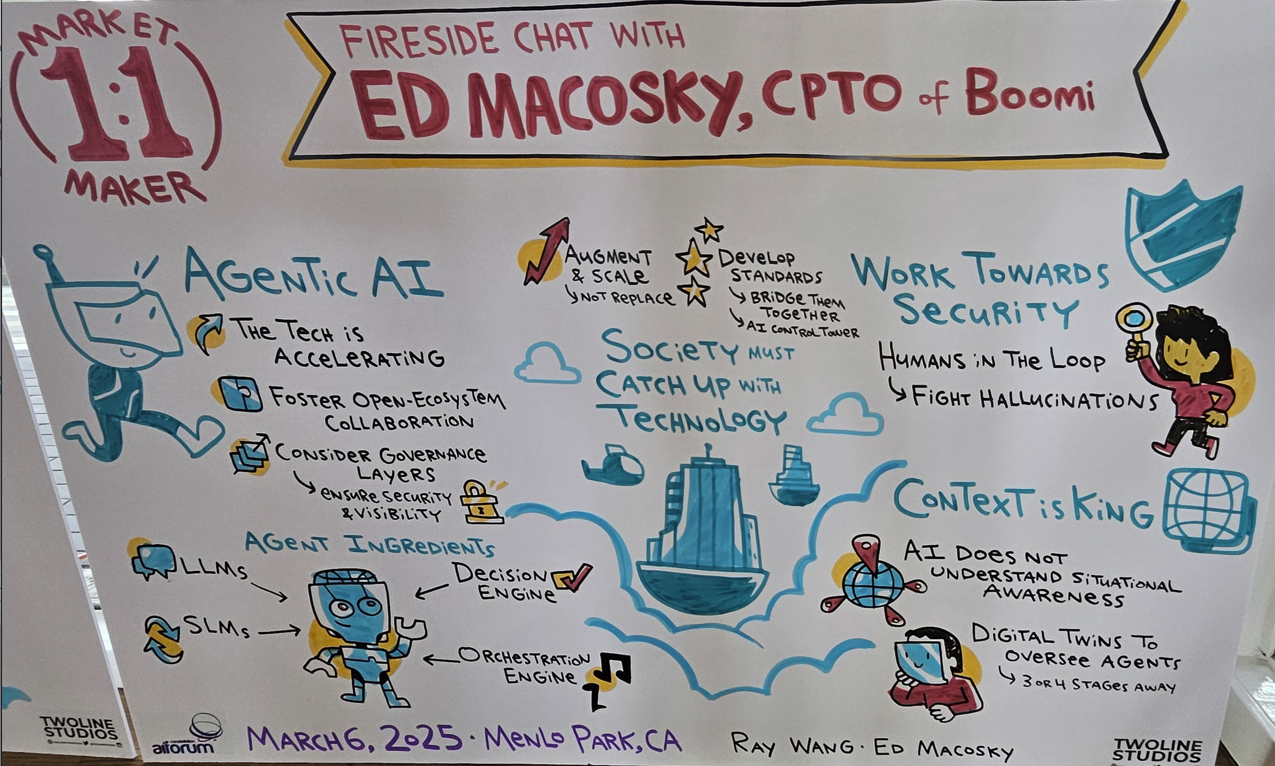 MARKET
1:1
MAKER
FIRESIDE CHAT WITH
ED MACOSKY, CPTO of Boomi
AGENTIC AI
THE TECH IS
ACCELERATING
FOSTER OPEN-ECOSYSTEM
COLLABORATION
CONSIDER GOVERNANCE
LAYERS
ENSURE SECURITY
& VISIBILITY
AUGMENT
& SCALE
NOT REPLACE
DEVELOP
STANDARDS
BRIDGE THEM
TOGETHER
AI CONTROL TOWER
SOCIETY MUST
CATCH UP WITH
TECHNOLOGY
WORK TOWARDS
SECURITY
HUMANS IN THE LOOP
FIGHT HALLUCINATIONS
AGENT INGREDIENTS
LLMs
SLMs
DECISION
ENGINE
ORCHESTRATION
ENGINE
CONTEXT IS KING
AI DOES NOT
UNDERSTAND SITUATIONAL
AWARENESS
DIGITAL TWINS TO
OVERSEE AGENTS
3 OR 4 STAGES AWAY
TWOLINE
STUDIOS
aiforum
MARCH 6, 2025 · MENLO PARK, CA
RAY WANG · ED MACOSKY
TWOLINE
STUDIOS